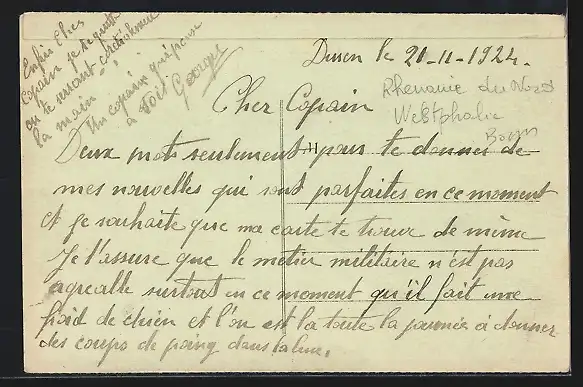 Duren le 21-11-1924.
Rhenanie du Nord
Westphalie
Cher Copain
Deux mots seulement pour te donner de
mes nouvelles qui sont parfaites en ce moment
et je souhaite que ma carte te trouve de même
Je t'assure que le métier militaire n'est pas
agreable surtout en ce moment qu'il fait une
froid de chien et l'on est la toute la journée a donner
des coups de poing dans la
Enfin Cher
Copain je te quitte
en te serrant cordialement
la main
Un copain qui pense
a toi Georges